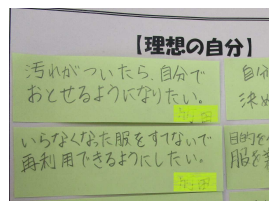 【理想の自分】
汚れがついたら、自分で
おとせるようになりたい。
いらなくなった服をすてないで
再利用できるようにしたい。
自分
目的を
服を